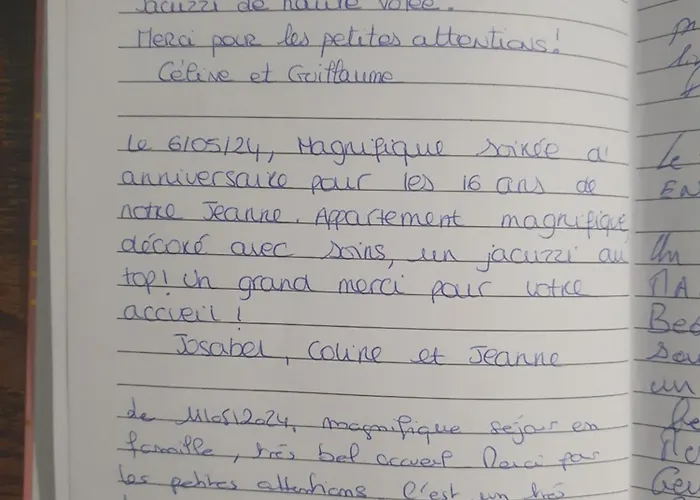 Jacuzzi de haute volée.
Merci pour les petites attentions!
Céline et Guillaume
Le 6/05/24, Magnifique soirée d'
anniversaire pour les 16 ans de
notre Jeanne. Appartement magnifique,
décoré avec soins, un jacuzzi au
top! Un grand merci pour votre
accueil!
Josabel, Coline et Jeanne
Le 11/05/2024, magnifique séjour en
famille, très bel accueil Merci pour
les petites attentions. C'est un très
Le
EN
Un
MA
Bea
un